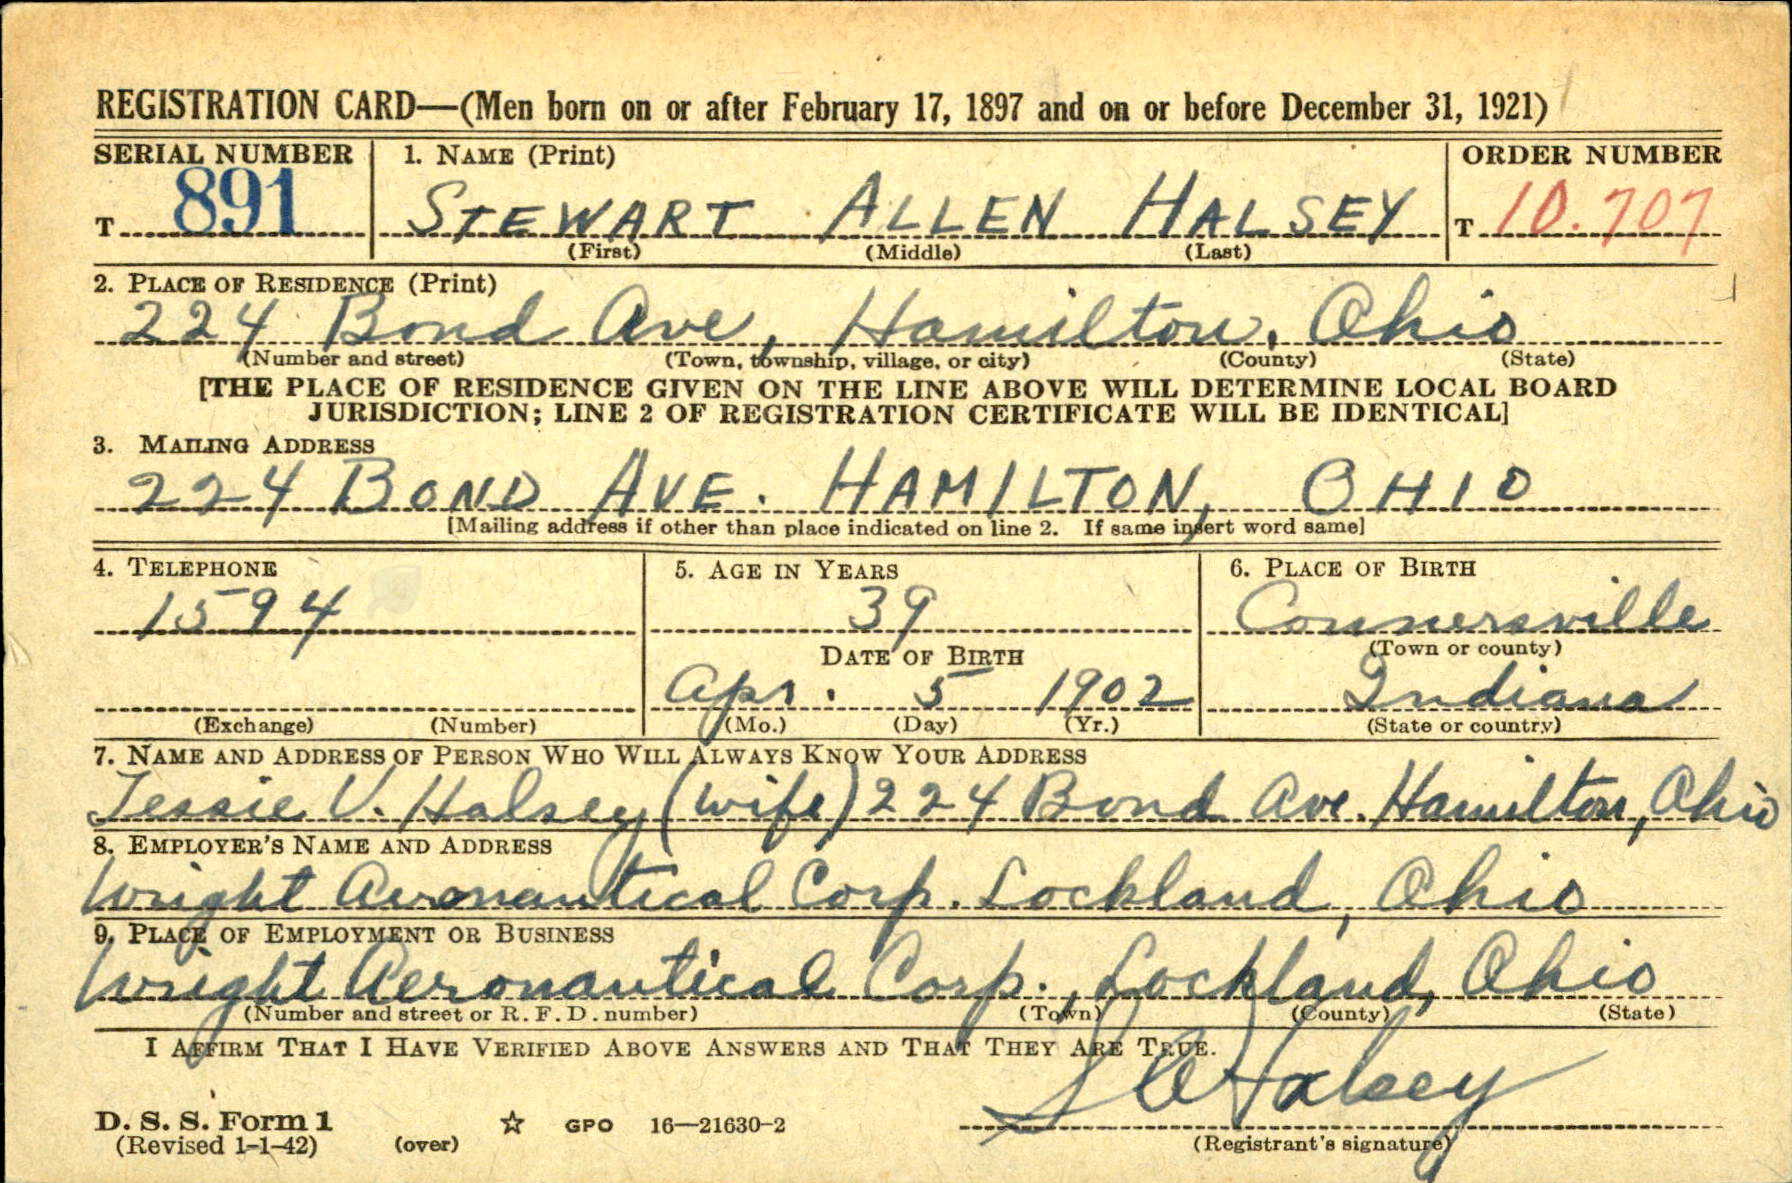 REGISTRATION CARD—(Men born on or after February 17, 1897 and on or before December 31, 1921)
SERIAL NUMBER 1. NAME (Print) ORDER NUMBER
T 891 STEWART ALLEN HALSEY T 10.707
(First) (Middle) (Last)
2. PLACE OF RESIDENCE (Print)
224 Bond Ave, Hamilton, Ohio
(Number and street) (Town, township, village, or city) (County) (State)
[THE PLACE OF RESIDENCE GIVEN ON THE LINE ABOVE WILL DETERMINE LOCAL BOARD
JURISDICTION; LINE 2 OF REGISTRATION CERTIFICATE WILL BE IDENTICAL]
3. MAILING ADDRESS
224 BOND AVE. HAMILTON, OHIO
[Mailing address if other than place indicated on line 2. If same insert word same]
4. TELEPHONE 5. AGE IN YEARS 6. PLACE OF BIRTH
1594 39 Connersville
DATE OF BIRTH (Town or county)
Apr. 5 1902 Indiana
(Exchange) (Number) (Mo.) (Day) (Yr.) (State or country)
7. NAME AND ADDRESS OF PERSON WHO WILL ALWAYS KNOW YOUR ADDRESS
Jessie V. Halsey (wife) 224 Bond Ave. Hamilton, Ohio
8. EMPLOYER'S NAME AND ADDRESS
Wright Aeronautical Corp. Lockland, Ohio
9. PLACE OF EMPLOYMENT OR BUSINESS
Wright Aeronautical Corp., Lockland, Ohio
(Number and street or R. F. D. number) (Town) (County) (State)
I AFFIRM THAT I HAVE VERIFIED ABOVE ANSWERS AND THAT THEY ARE TRUE.
S A Halsey
D. S. S. Form 1 ☆ GPO 16—21630-2
(Revised 1-1-42) (over) (Registrant's signature)